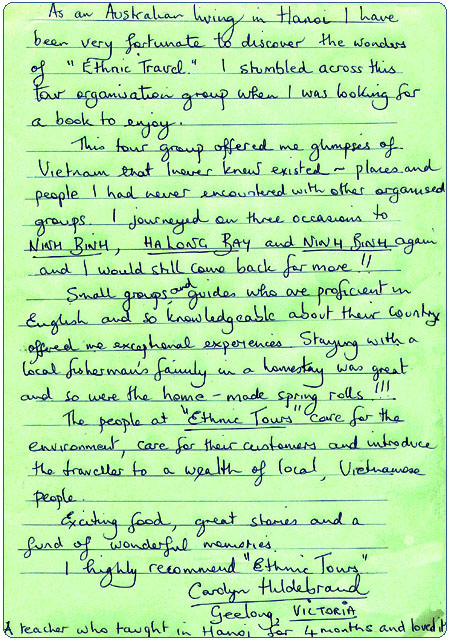 As an Australian living in Hanoi I have
been very fortunate to discover the wonders
of "Ethnic Travel." I stumbled across this
tour organisation group when I was looking for
a book to enjoy.
This tour group offered me glimpses of
Vietnam that I never knew existed ~ places and
people I had never encountered with other organised
groups. I journeyed on three occasions to
NINH BINH, HALONG BAY and NINH BINH again
and I would still come back for more!!
Small groups and guides who are proficient in
English and so knowledgeable about their country
offered me exceptional experiences. Staying with a
local fisherman's family in a homestay was great
and so were the home-made spring rolls!!!
The people at "Ethnic Tours" care for the
environment, care for their customers and introduce
the traveller to a wealth of local, Vietnamese
people.
Exciting food, great stories and a
fund of wonderful memories.
I highly recommend "Ethnic Tours"
Carolyn Hildebrand
Geelong, VICTORIA
A teacher who taught in Hanoi for 4 months and loved it